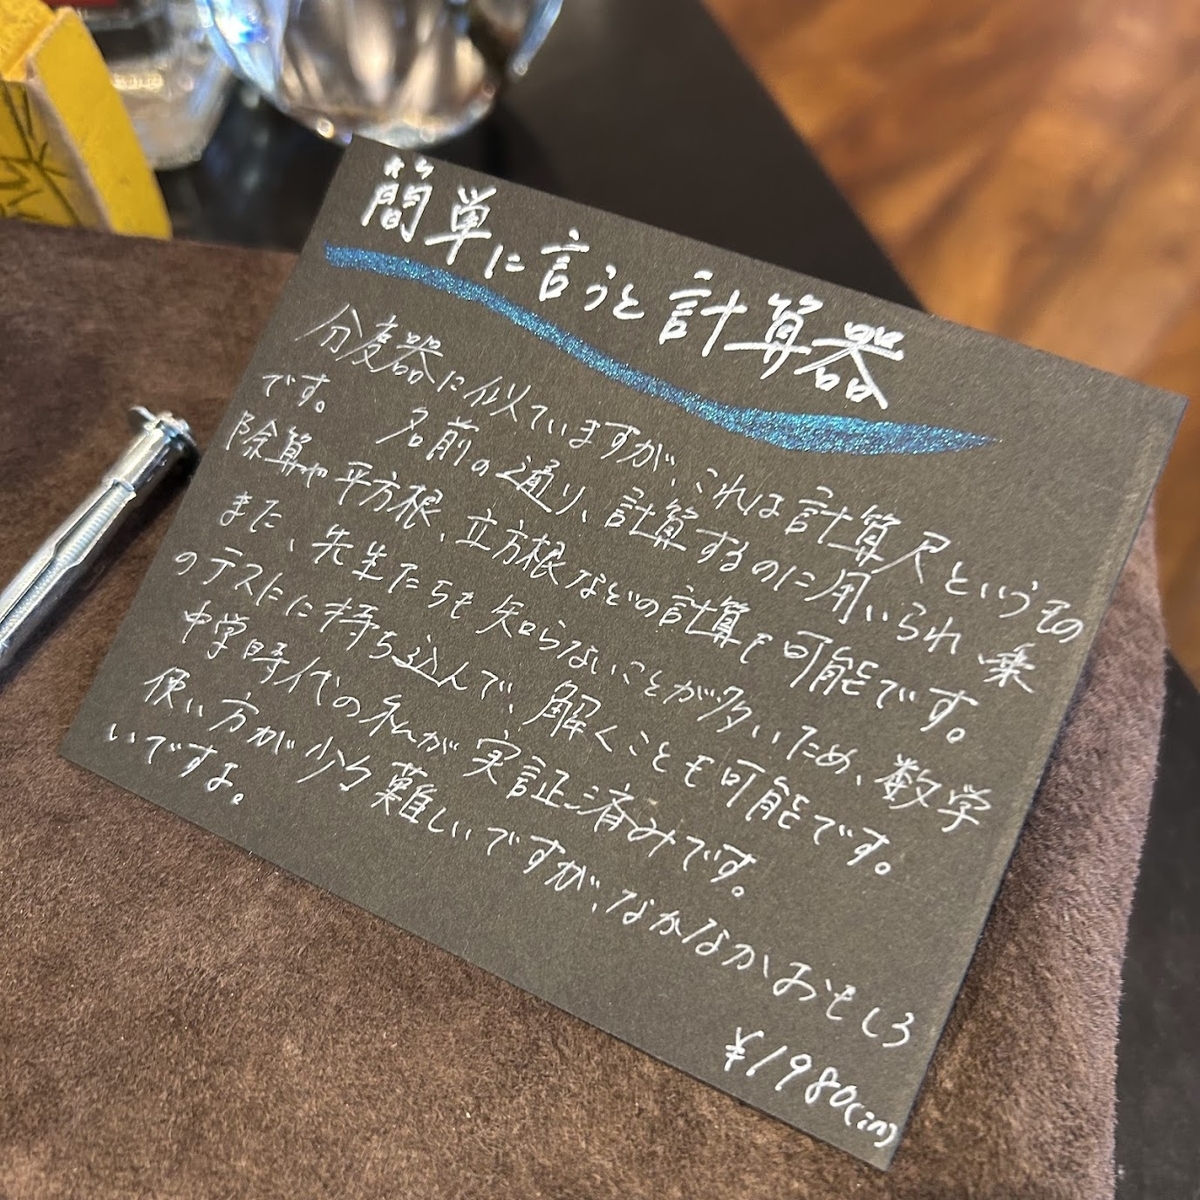 簡単に言うと計算器
分度器に似ていますが、これは計算尺というもの
です。 名前の通り、計算するのに用いられ、乗
除算や平方根、立方根などの計算も可能です。
また、先生たちも知らないことが多いため、数学
のテストに持ち込んで、解くことも可能です。
中学時代の私が実証済みです。
使い方が少々難しいですが、なかなかおもしろ
いですよ。
¥1980(in)